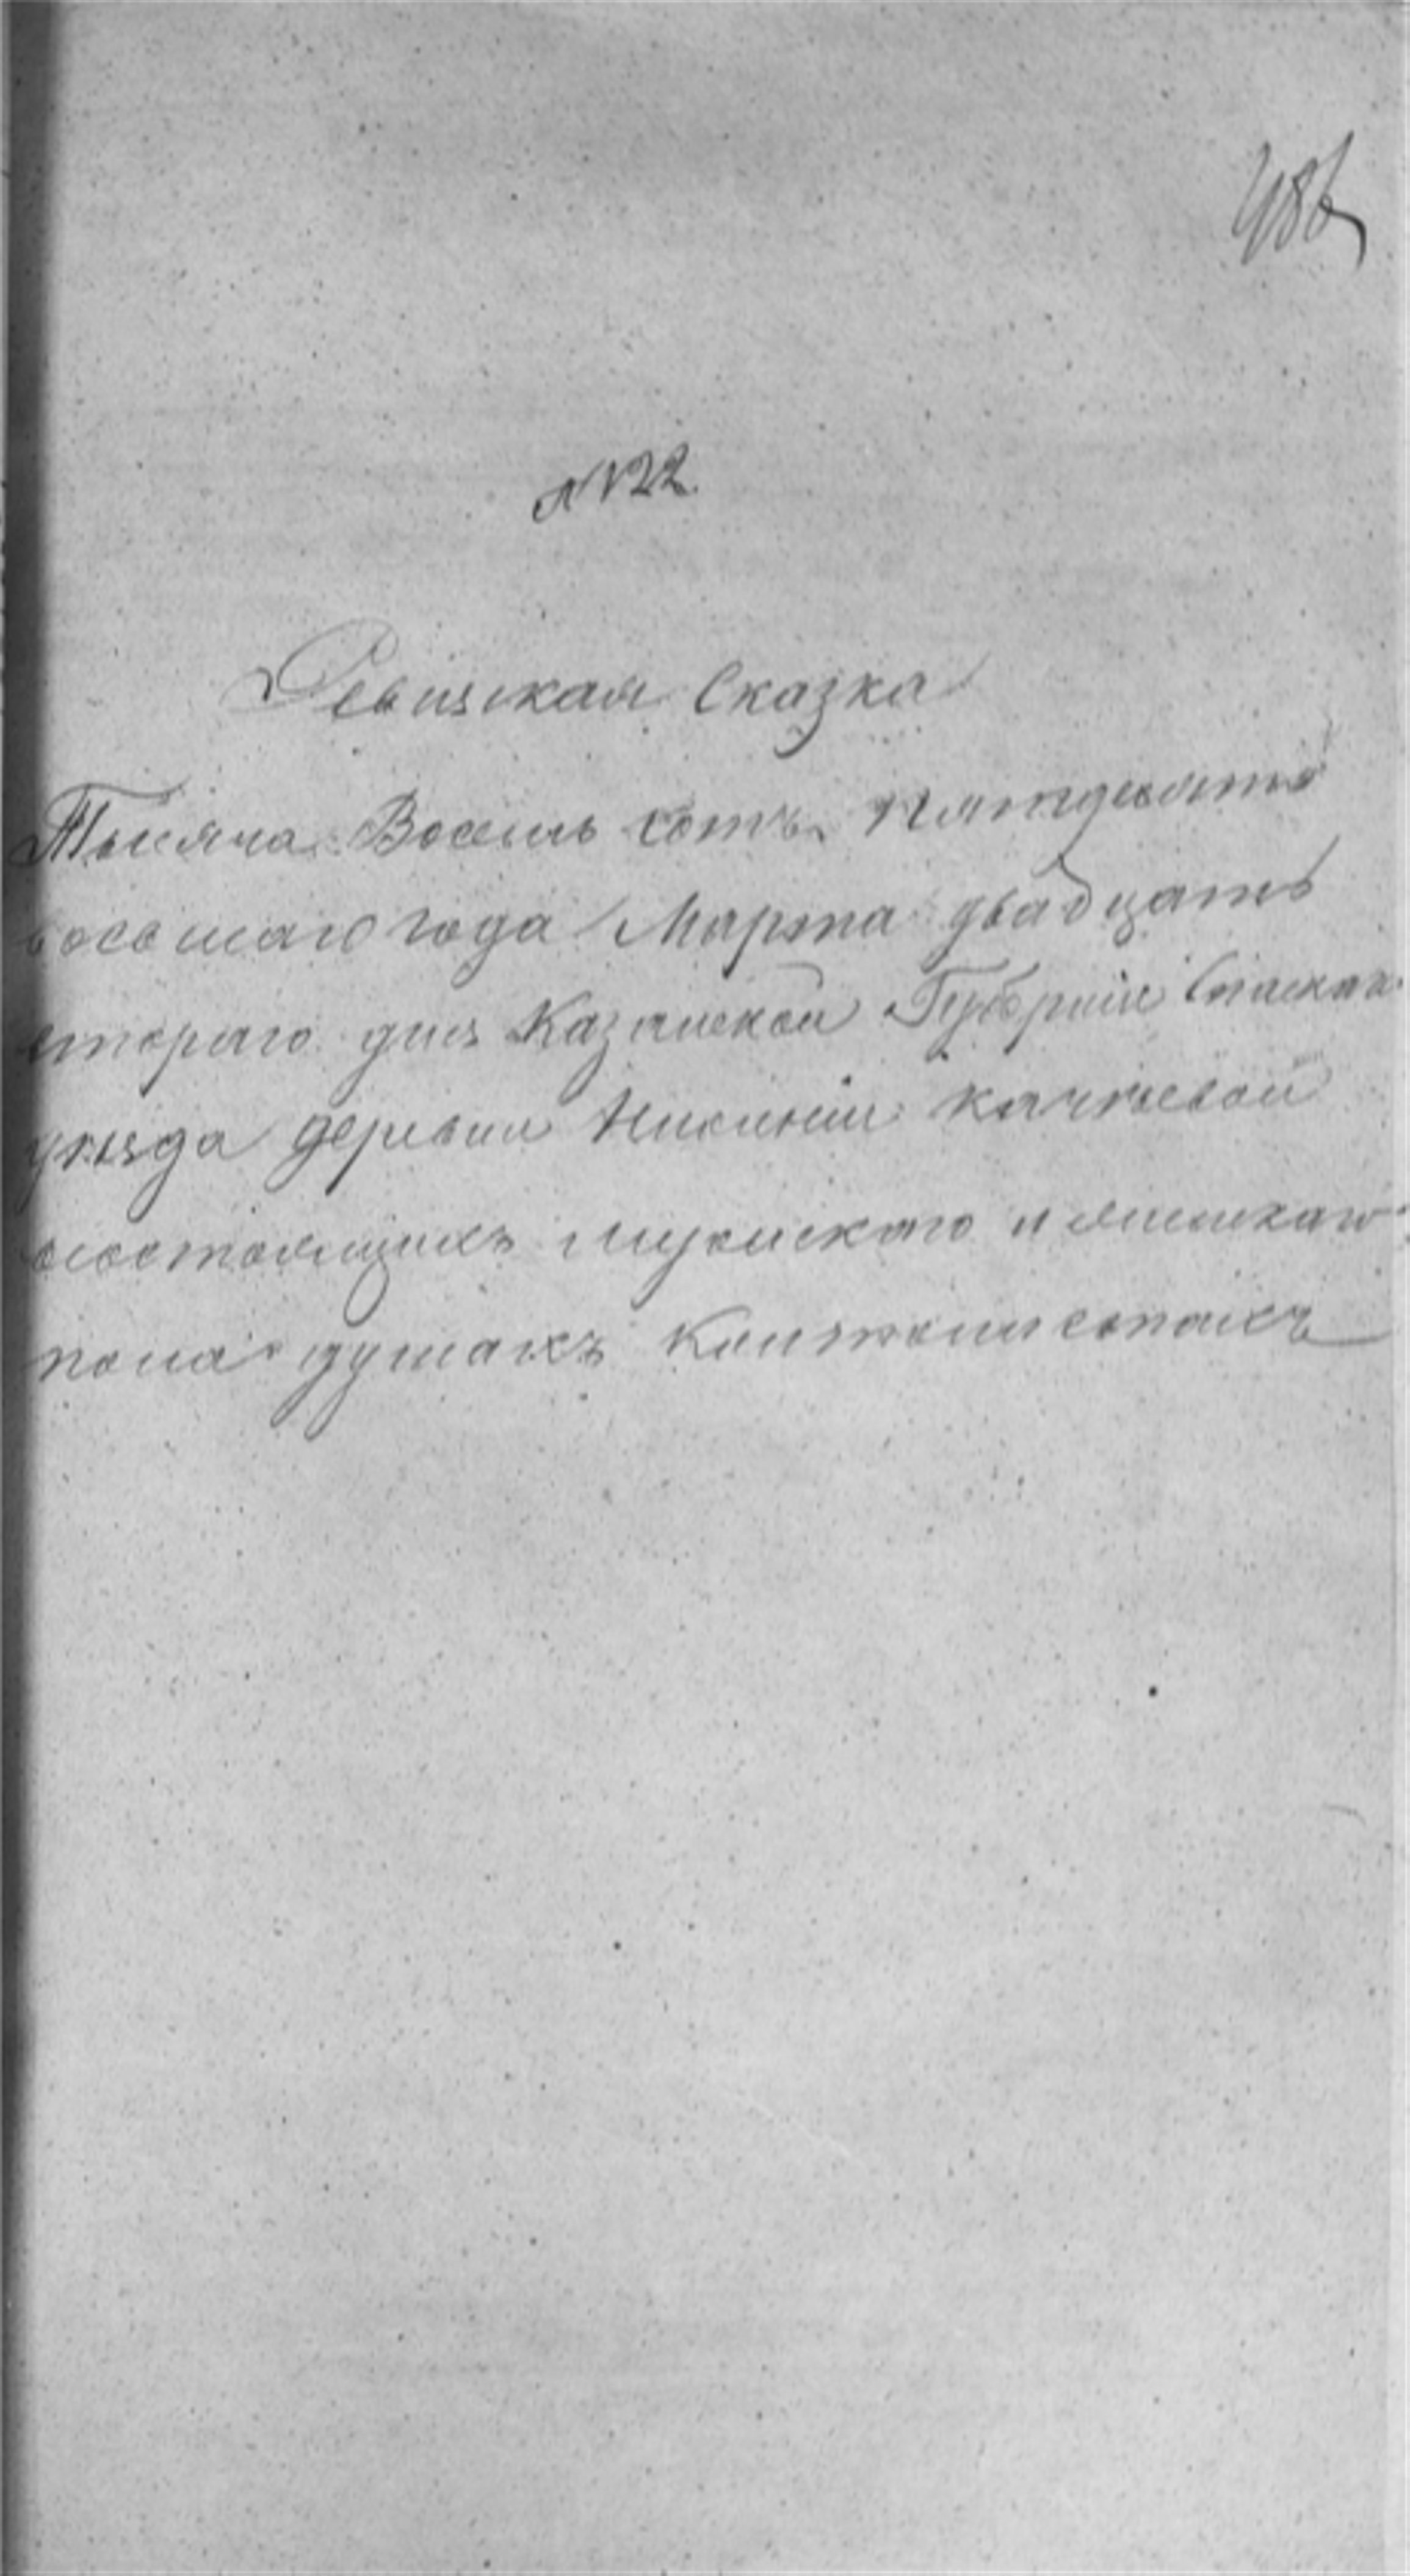 486
№22.
Ревизская Сказка
Тысяча Восемь сотъ пятдесятъ
восьмаго года Марта двадцать
втораго дня Казанской Губернiи Спаскаго
уѣзда деревни Нижнiй качѣевой
состоящихъ мужскаго и женскаго
пола душахъ Кантонистахъ